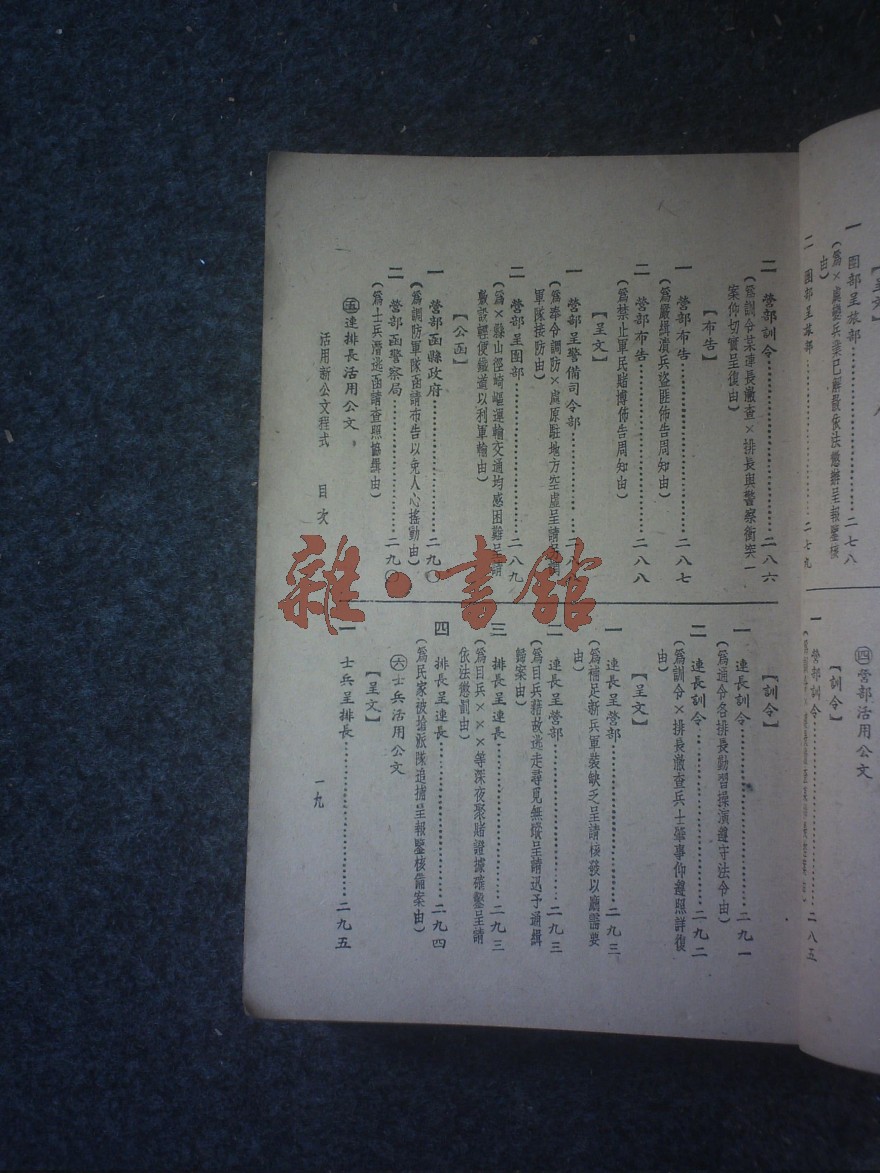 【呈文】
一 團部呈旅部……二七八
(爲×處變兵業已解散依法懲辦呈報鑒核
由)
二 團部呈旅部……二七九
㊃營部活用公文
【訓令】
一 營部訓令……二八五
二 營部訓令……二八六
(爲訓令某連長澈查×排長與警察衝突一
案仰切實呈復由)
【布告】
一 營部布告……二八七
(爲嚴緝潰兵盜匪佈告周知由)
二 營部布告……二八八
(爲禁止軍民賭博佈告周知由)
【呈文】
一 營部呈警備司令部……二八
(爲奉令調防×處原駐地方空虛呈請
軍隊接防由)
二 營部呈團部……二八九
(爲×縣山徑崎嶇運輸交通均感困難呈請
敷設輕便鐵道以利軍輸由)
【公函】
一 營部函縣政府……二九〇
(爲調防軍隊函請布告以免人心搖動由)
二 營部函警察局……二九〇
(爲士兵潛逃函請查照協緝由)
㊄連排長活用公文
【訓令】
一 連長訓令……二九一
(爲通令各排長勤習操演遵守法令由)
二 連長訓令……二九二
(爲訓令×排長澈查兵士肇事仰遵照詳復
由)
【呈文】
一 連長呈營部……二九三
(爲補足新兵軍裝缺乏呈請核發以應需要
由)
二 連長呈營部……二九三
(爲目兵藉故逃走尋覓無蹤呈請迅予通緝
歸案由)
三 排長呈連長……二九三
(爲目兵×××等深夜聚賭證據確鑿呈請
依法懲罰由)
四 排長呈連長……二九四
(爲民家被搶派隊追捕呈報鑒核備案由)
㊅士兵活用公文
【呈文】
一 士兵呈排長……二九五
活用新公文程式 目次
一九
雜·書館